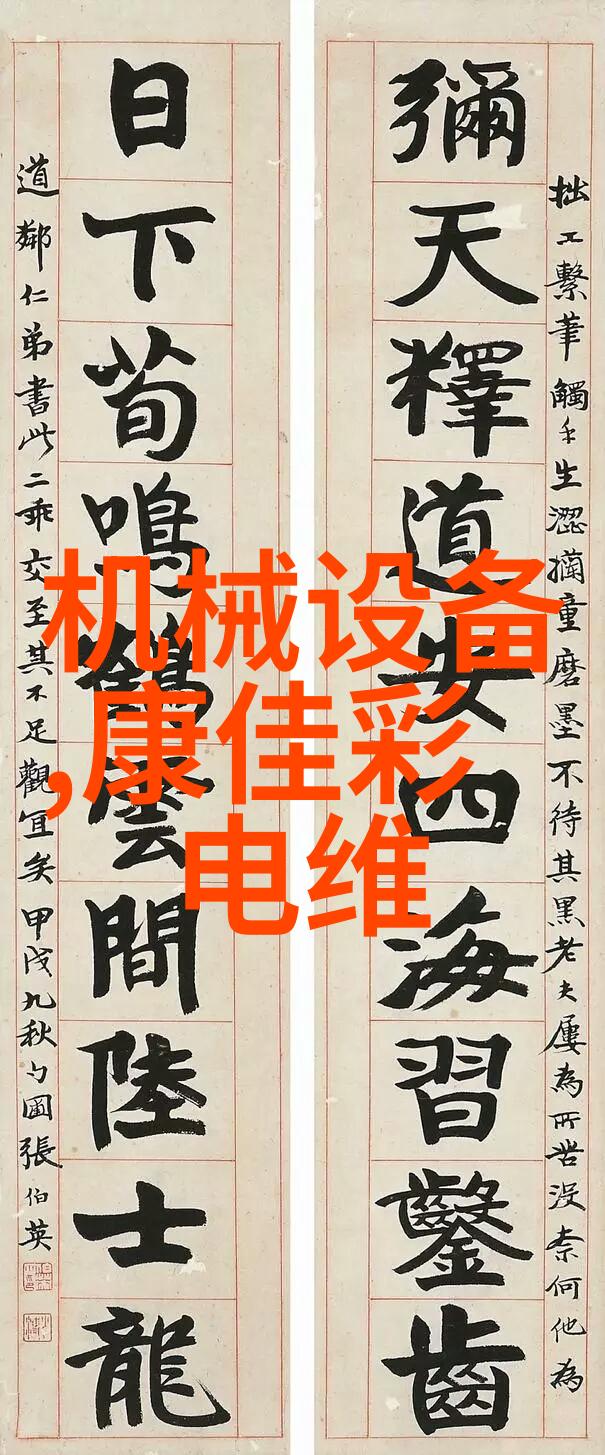 拙工繫筆觸手生澀童磨墨不待其黑老夫屢為所苦沒柰何他為
彌天釋道安四海習鑿齒
日下荀鳴鶴雲間陸士龍
道鄰仁弟書此二乖交至其不足觀宜矣甲戌九秋勺圃張伯英
机械设备
,康佳彩
电维